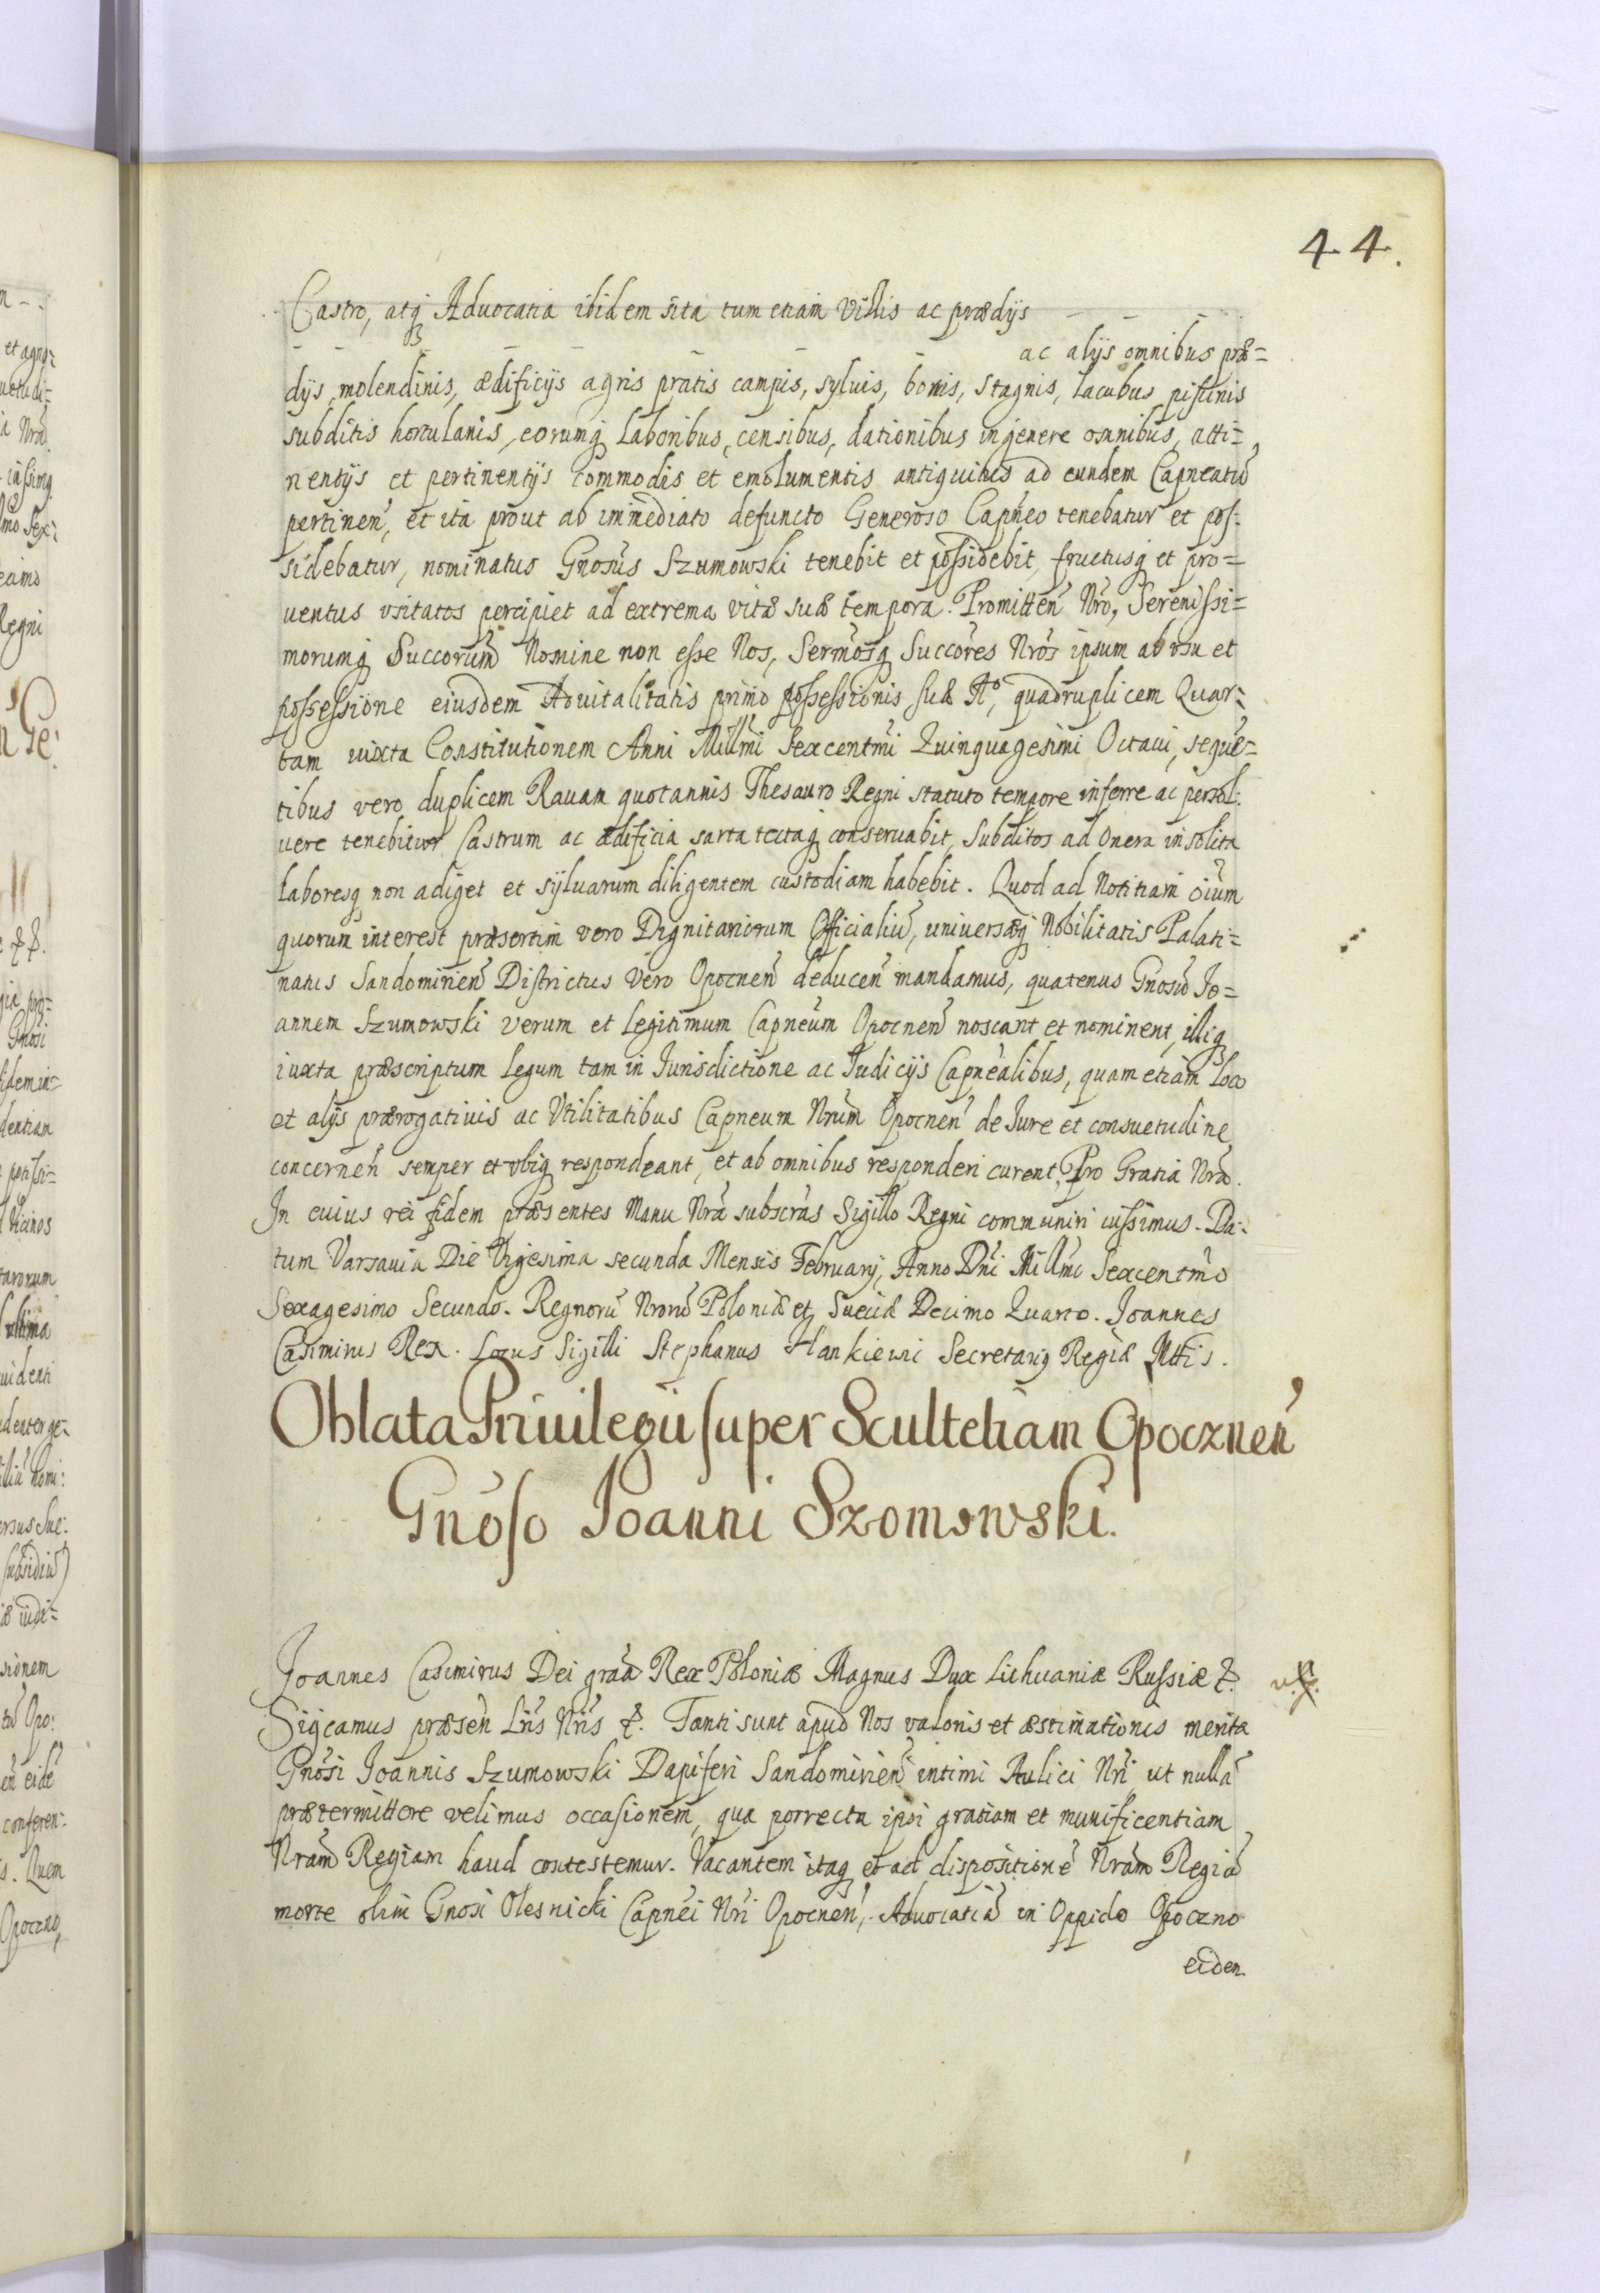 44.
Castro, atq Advocatia ibidem sita tum etiam Villis ac prædijs
ac alijs omnibus præ=
dijs, molendinis, ædificijs agris pratis campis, syluis, boris, stagnis, lacubus piscinis
subditis hortulanis, eorumq laboribus, censibus, dationibus in genere omnibus, atti=
nentijs et pertinentijs commodis et emolumentis antiquitus ad eundem Capneatū
pertinen̄, et ita prout ab immediato defuncto Generoso Capn̄eo tenebatur et pos:
sidebatur, nominatus Gn̄osus Szumowski tenebit et possidebit, fructusq et pro=
uentus vsitatos percipiet ad extrema vitæ suæ tempora. Promitten̄ Nr̄o, Serenissi=
morumq Succorum̄ Nomine non esse Nos, Serm̄osq Succōres Nr̄os ipsum ab vsu et
possessione eiusdem Aduitalitatis primo possessionis suæ A°, quadruplicem Quar=
tam iuxta Constitutionem Anni Mill̄mi Sexcentm̄i Quinquagesimi Octaui, seque=
tibus vero duplicem Rauam quotannis Thesauro Regni statuto tempore inferre ac persol:
uere tenebitur Castrum ac ædificia sarta tectaq conseruabit, Subditos ad onera insolita
laboresq non adiget et syluarum diligentem custodiam habebit. Quod ad Notitiam oīum
quorum interest præsertim vero Dignitariorum Officialiū, uniuersæq Nobilitatis Palati=
natus Sandomirien̄ Districtus vero Opocnen̄ deducen̄ mandamus, quatenus Gn̄osū Jo=
annem Szumowski verum et legitimum Capn̄eum Opocnen̄ noscant et nominent, illiq
iuxta præscriptum legum tam in Iurisdictione ac Iudicijs Capn̄ealibus, quam etiam loco
et alijs prærogatiuis ac Vtilitatibus Capneum Nr̄um Opocnen̄ de Iure et consuetudine
concernen̄ semper et vbiq respondeant, et ab omnibus responderi curent, Pro Gratia Nr̄a.
In cuius rei fidem præsentes Manu Nr̄a subscr̄as Sigillo Regni communiri iussimus. Da:
tum Varsauia Die Vigesima secunda Mensis February, Anno Dn̄i Mill̄mo Sexcentm̄o
Sexagesimo Secundo. Regnorū Nr̄orū Poloniæ et Sueciæ Decimo Quarto. Joannes
Casimirus Rex. Locus Sigilli Stephanus Hankiewic Secretariq Regiæ Mttis.
Oblata Priuilegii super Scultetiam Opocznen̄
Gn̄oso Joanni Szomowski.
Joannes Casimirus Dei gra̅a Rex Poloniæ Magnus Dux Lithuaniæ Russiæ &.
Sigcamus præsen̄ Lr̄is Nr̄is &. Tanti sunt apud Nos valoris et æstimationis merita
Gn̄osi Joannis Szumowski Dapiferi Sandomirien̄ intimi Aulici Nr̄i ut nullā
prætermittere velimus occasionem, qua porrecta ipsi gratiam et munificentiam
Nr̄am Regiam haud contestemur. Vacantem itaq et ad dispositionē Nr̄am Regiā
morte olim Gn̄osi Olesnicki Capn̄ei Nr̄i Opocnen̄, Aduocatiā in Oppido Opoczno
eiden